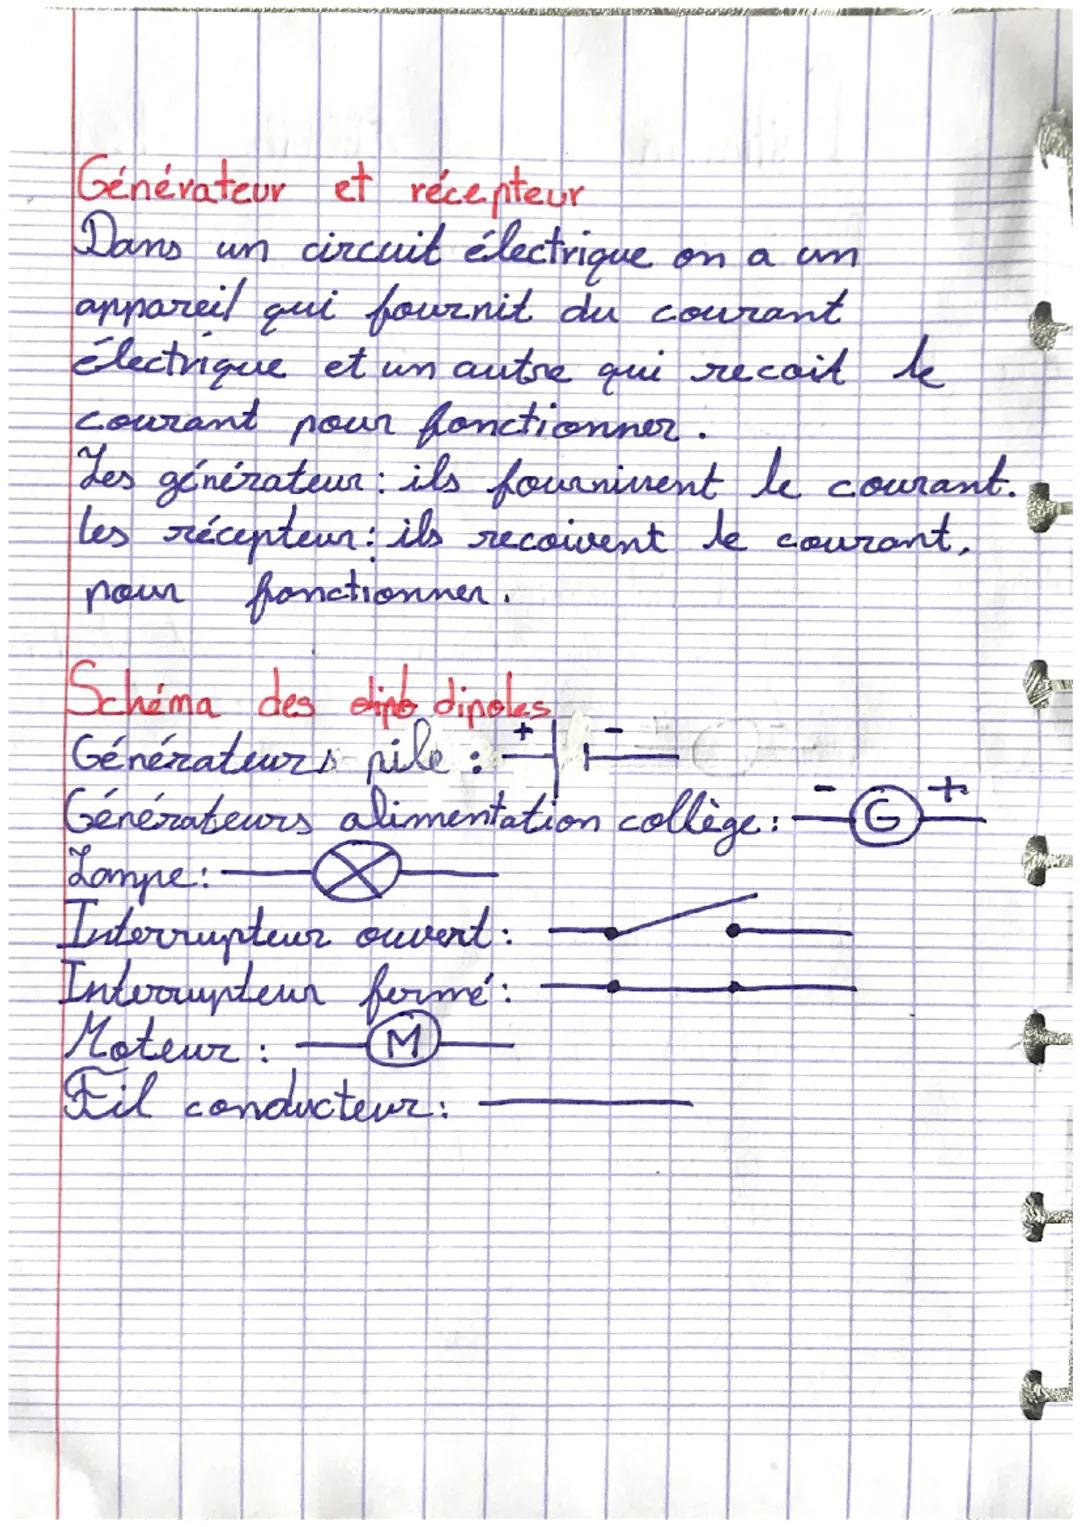 Générateur et récepteur
Dans un circuit électrique on a un
appareil qui fournit du courant
électrique et un autre qui recoit le
courant pour fonctionner.
Les générateur : ils fournissent le courant.
les récepteur : ils recoivent le courant,
pour fonctionner.
Schéma des dipôles
Générateurs pile : + -
Générateurs alimentation collège : - G +
Lampe :
Interrupteur ouvert :
Interrupteur fermé :
Moteur : M
Fil conducteur :